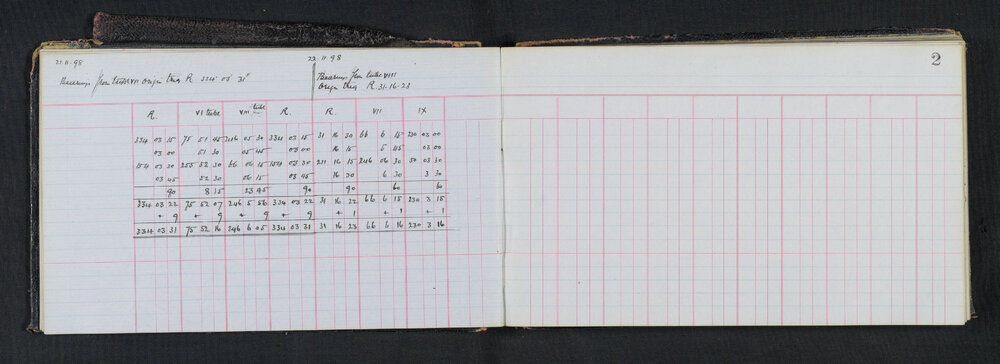 21.11.98
22 11 98
2
Bearings from tube VII origin thus R 334° 03' 31"
Bearings from tube VIII
Origin thus R. 31.16.23
R. VI tube VIII tube R. R. VII IX
334 03 15 75 51 45 246 05 30 334 03 15 31 16 30 66 6 15 230 03 00
03 00 51 30 05 45 03 00 16 15 5 45 03 00
154 03 30 255 52 30 66 06 15 154 03 30 211 16 15 246 06 30 50 03 30
03 45 52 30 06 15 03 45 16 30 6 30 3 30
90 8 15 23 45 90 90 60 60
334 03 22 75 52 07 246 5 56 334 03 22 31 16 22 66 6 15 230 3 15
+ 9 + 9 + 9 + 9 + 1 + 1 + 1
334 03 31 75 52 16 246 6 05 334 03 31 31 16 23 66 6 16 230 3 16